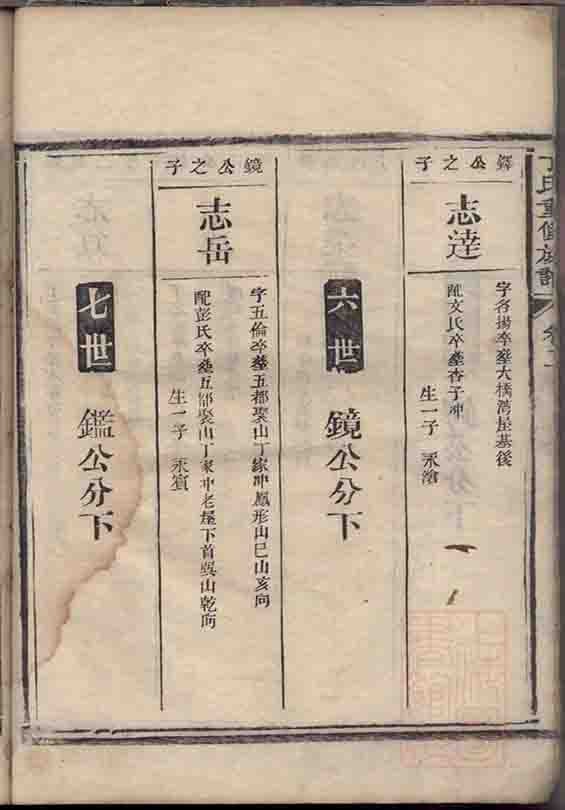 丁氏重修族譜
卷二
鐸公之子
志達
字名揚卒塟大橋灣屋基後
配文氏卒塟杏子冲
生一子 永滄
六世 鏡公分下
鏡公之子
志岳
字五倫卒塟五都娶山丁家冲鳳形山巳山亥向
配彭氏卒塟五都娶山丁家冲老屋下首巽山乾向
生一子 永賓
七世 鑑公分下